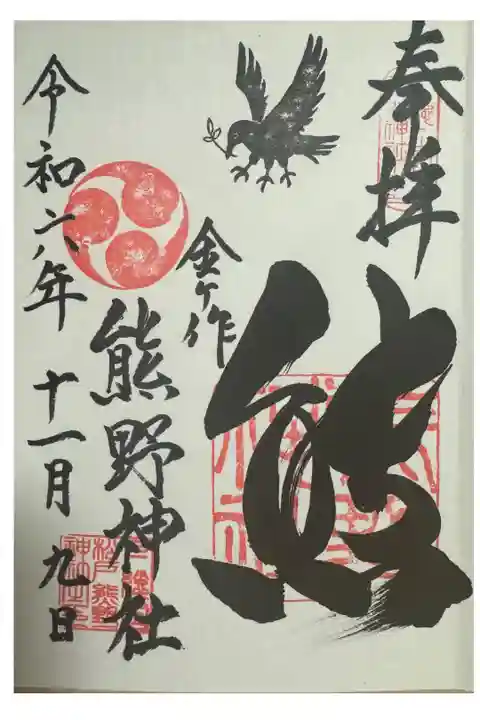 奉拝
熊
金ケ作
熊野神社
令和六年十一月九日